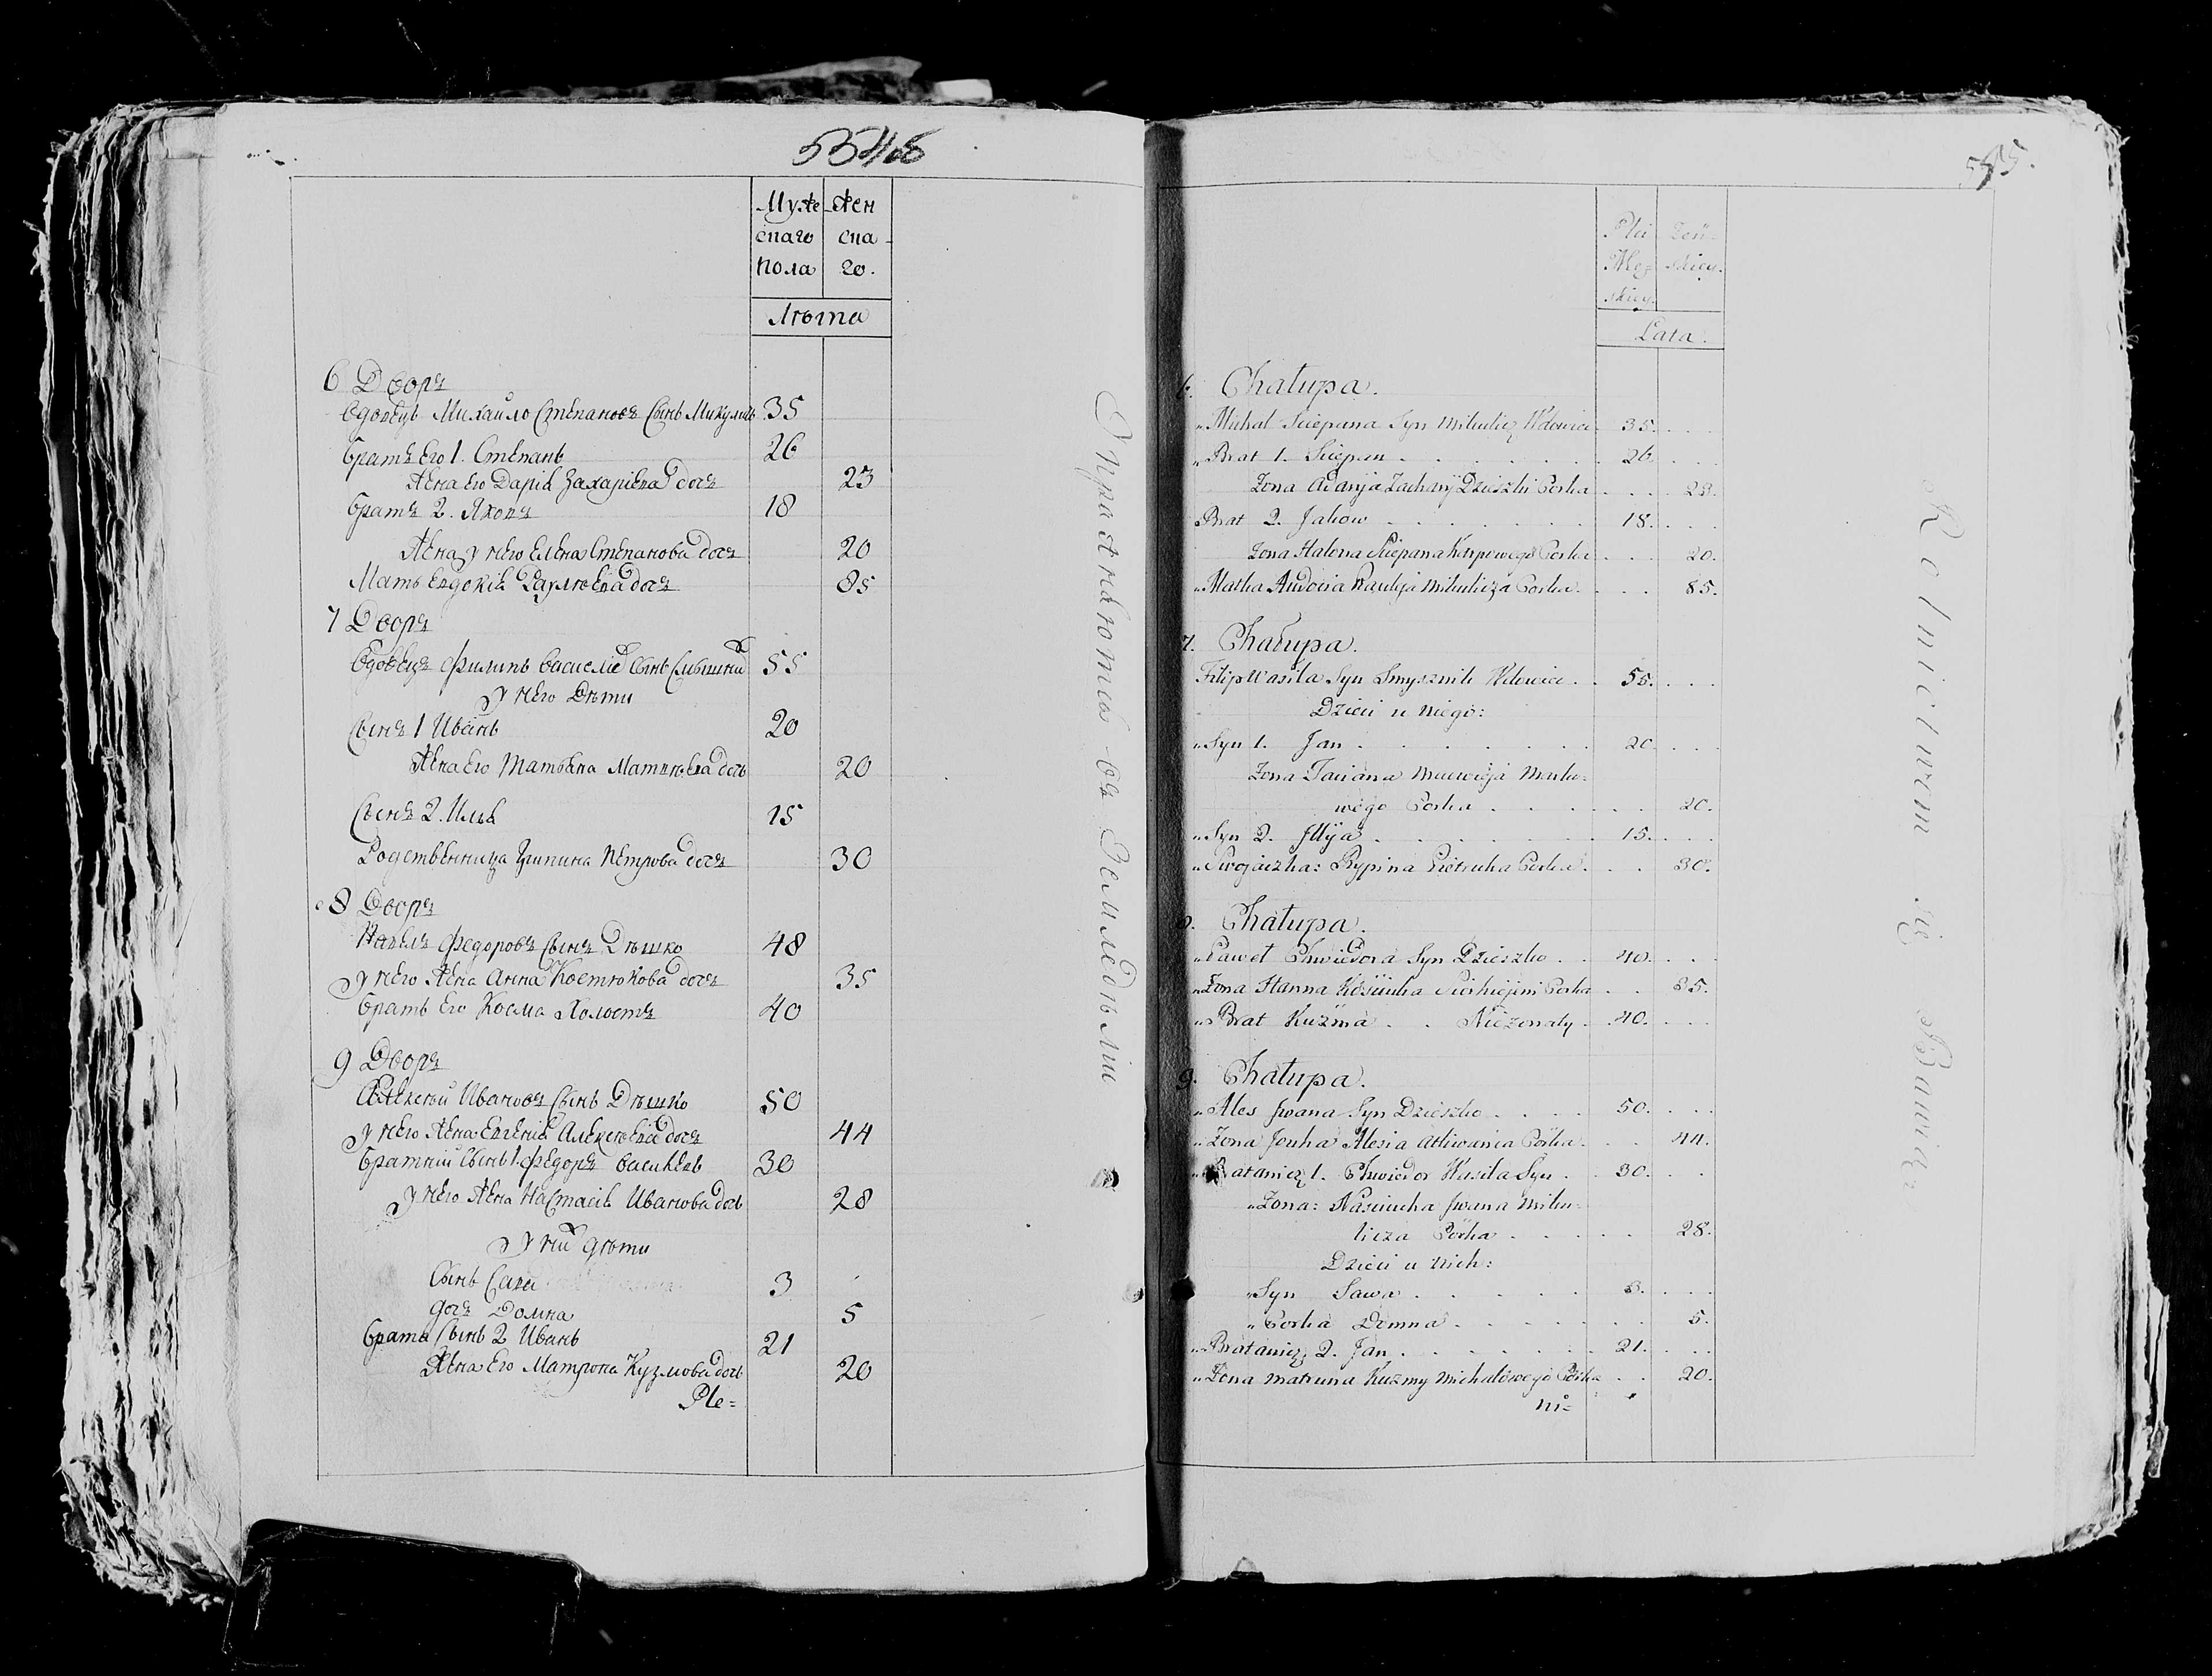 Муже Жен
скаго ска-
пола го.
Лѣта
6 Дворъ
Вдовецъ Михайло Степановъ Сынъ Микуличъ 35
братъ Его 1. Степанъ 26
Жена Его Дарія Захаріева дочъ 23
братъ 2. Яковъ 18
Жена у него Елена Степанова дочъ 20
Мать Евдокія Раулѣева дочъ 85
7 Дворъ
Вдовецъ Филипъ василіе сынъ 55
У него Дѣти
Сынъ 1 Иванъ 20
Жена Его Татьяна Матвѣева дочь 20
Сынъ 2. Илья 15
Родственница Петрова дочъ 30
8 Дворъ
Павелъ Федоровъ Сынъ Дѣшко 48
у него Жена Анна Костюкова дочъ 35
братъ Его Косма Холостъ 40
9 Дворъ
Алексѣй Ивановъ Сынъ Дѣшко 50
у него Жена Евгенія Алексѣева дочъ 44
братній Сынъ 1. Федоръ васильевъ 30
у него Жена Настасія Иванова дочь 28
У ний дѣти
Сынъ Сава 3
дочъ Домна 5
брата Сынъ 2 Иванъ 21
Жена Его Матрона Кузмова дочь 20
Ple=
Упражняются въ Земледѣліи
Płci Żeń-
Męz- skiey.
skiey.
Lata.
6. Chałupa.
„Michał Sciepana Syn Mikulicz Wdowiec 35.
„Brat 1. Sciepan 26.
Zona Adarja Zachary Dzieszki Corka 23.
Brat 2. Jakow 18.
Zona Halena Sciepana Karpowego Corka 20.
„Matka Audocia Rauleja Mikulicza Corka 85.
7. Chałupa.
Filip Wasila Syn Smysznik Wdowiec 55.
Dzieci u niego:
„Syn 1. Jan 20.
Zona Taciana Maciwieja
wego Corka 20.
„Syn 2. Jllja 15.
„Swojaczka: Rypina Pietruka Corka 30.
8. Chałupa.
„Paweł Chwiedora Syn Dzieszko 40.
„Zona Hanna Corka 35.
„Brat Kuzma Niezonaty 40.
9. Chałupa.
„Ales Jwana Syn Dzieszko 50.
„Zona Jouha Alesia Corka 44.
„Bratanicz 1. Chwiedor Wasila Syn 30.
„Zona: Nasciucha Jwana Miku-
licza Corka 28.
Dzieci u nich:
„Syn Sawa 3.
„Corka Domna 5.
„Bratanicz 2. Jan 21.
„Zona Matruna Kuzmy Michałowego Corka 20.
ni=
Rolnictwem się Bawią